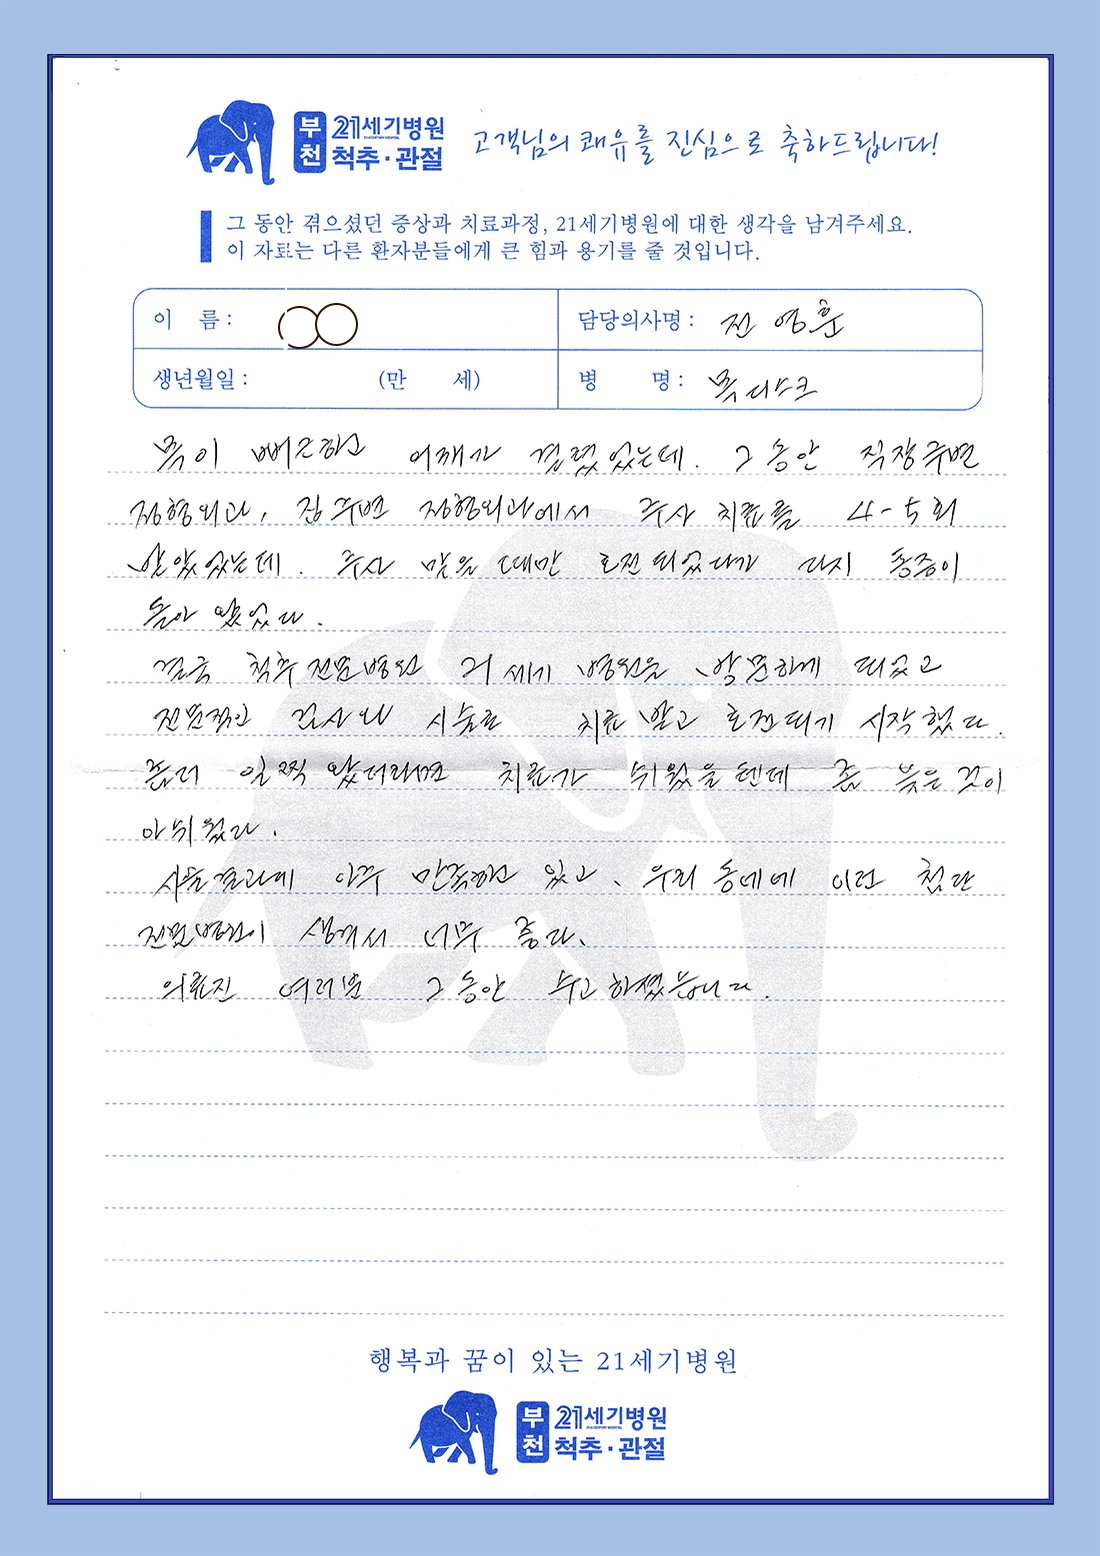 부천 21세기병원 척추·관절 고객님의 쾌유를 진심으로 축하드립니다!
그 동안 겪으셨던 증상과 치료과정, 21세기병원에 대한 생각을 남겨주세요.
이 자료는 다른 환자분들에게 큰 힘과 용기를 줄 것입니다.
이 름 : 담당의사명 : 전영훈
생년월일 : (만 세) 병 명 : 목디스크
목이 뻐근하고 어깨가 결렸었는데. 그동안 직장주변
정형외과, 집주변 정형외과에서 주사 치료를 4-5회
받았었는데. 주사 맞을 때만 호전되었다가 다시 통증이
돌아 왔었다.
결국 척추전문병원 21세기 병원을 방문하게 되었고
전문적인 검사와 시술로 치료받고 호전되기 시작했다.
좀더 일찍 왔더라면 치료가 쉬웠을텐데 좀 늦은것이
아쉬웠다.
시술결과에 아주 만족하고 있고, 우리 동네에 이런 첨단
전문병원이 생겨서 너무 좋다.
의료진 여러분 그동안 수고하셨습니다.
행복과 꿈이 있는 21세기병원
부천 21세기병원 척추·관절